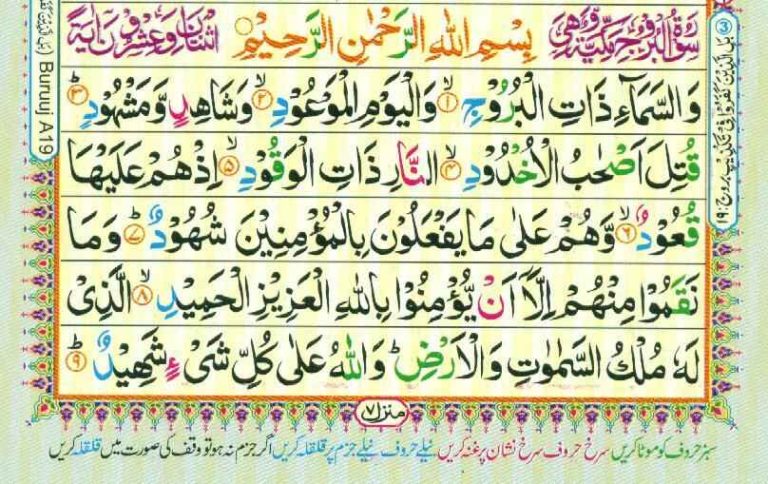 سُوْرَةُ الْبُرُوْجِ مَكِّيَّةٌ وَّهِيَ بِسْمِ اللهِ الرَّحْمٰنِ الرَّحِيْمِ اثْنَتَانِ وَعِشْرُوْنَ اٰيَةً
وَالسَّمَآءِ ذَاتِ الْبُرُوْجِ ۙ﴿۱﴾ وَالْيَوْمِ الْمَوْعُوْدِ ۙ﴿۲﴾ وَشَاهِدٍ وَّمَشْهُوْدٍ ؕ﴿۳﴾
قُتِلَ اَصْحٰبُ الْاُخْدُوْدِ ۙ﴿۴﴾ النَّارِ ذَاتِ الْوَقُوْدِ ۙ﴿۵﴾ اِذْ هُمْ عَلَيْهَا
قُعُوْدٌ ۙ﴿۶﴾ وَّهُمْ عَلٰى مَا يَفْعَلُوْنَ بِالْمُؤْمِنِيْنَ شُهُوْدٌ ؕ﴿۷﴾ وَمَا
نَقَمُوْا مِنْهُمْ اِلَّاۤ اَنْ يُّؤْمِنُوْا بِاللهِ الْعَزِيْزِ الْحَمِيْدِ ۙ﴿۸﴾ الَّذِىْ
لَهٗ مُلْكُ السَّمٰوٰتِ وَالْاَرْضِ ؕ وَاللهُ عَلٰى كُلِّ شَىْءٍ شَهِيْدٌ ؕ﴿۹﴾
منزل ۷
سبز حروف کو موٹا کریں سرخ حروف سرخ نشان پر غنہ کریں نیلے حروف نیلے جزم پر قلقلہ کریں اگر جزم نہ ہو تو وقف کی صورت میں قلقلہ کریں
Buruuj A19